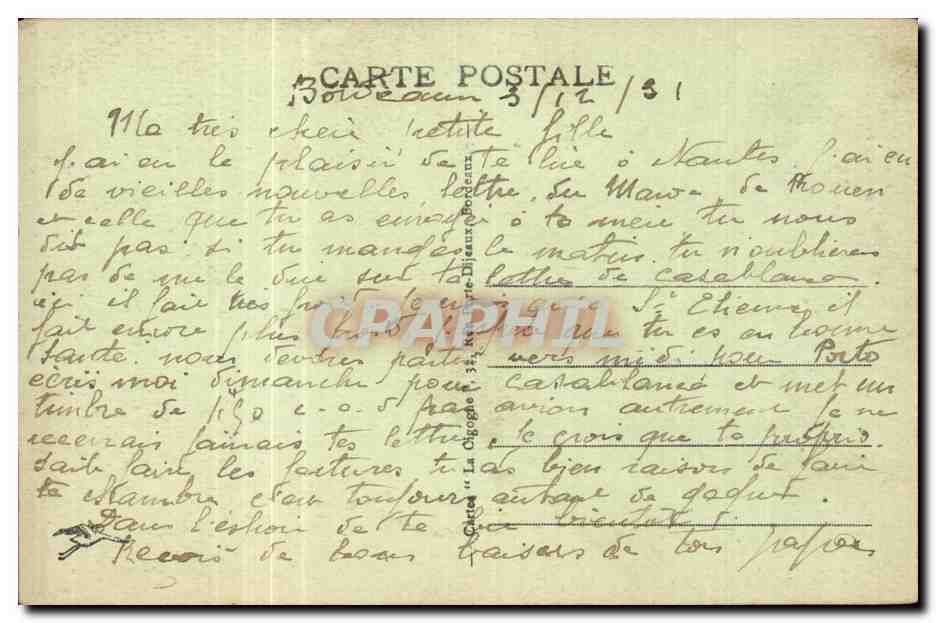 CARTE POSTALE
Bordeaux 3/12/31
Ma très cheri petite fille
j'ai eu le plaisir de te lire a Nantes j'ai eu
de vieilles nouvelles lettre du Maroc de Rouen
et celle que tu as envoyé a to tu nous
dit pas si tu manges le matin tu n'oublieras
pas de me le dire sur ta lettre de Casablanca
ici il fait tres froid que St Etienne il
fait encore plus froid que tu es en bonne
Santé nous devons partir vers midi pour Porto
écris moi dimanche pour Casablanca et met un
timbre de 1,50 c-a-d par avion autrement je ne
recevrais jamais tes lettres, je crois que ta proprio
sait faire les factures tu as bien raison de faire
ta chambre c'est toujours autant de gagné.
Dans l'espoir de te lire bientôt
Recois de bons baisers de ton papa
Cartes "La Cigogne", 37, Rue Porte-Dijeaux, Bordeaux
CPAPHIL